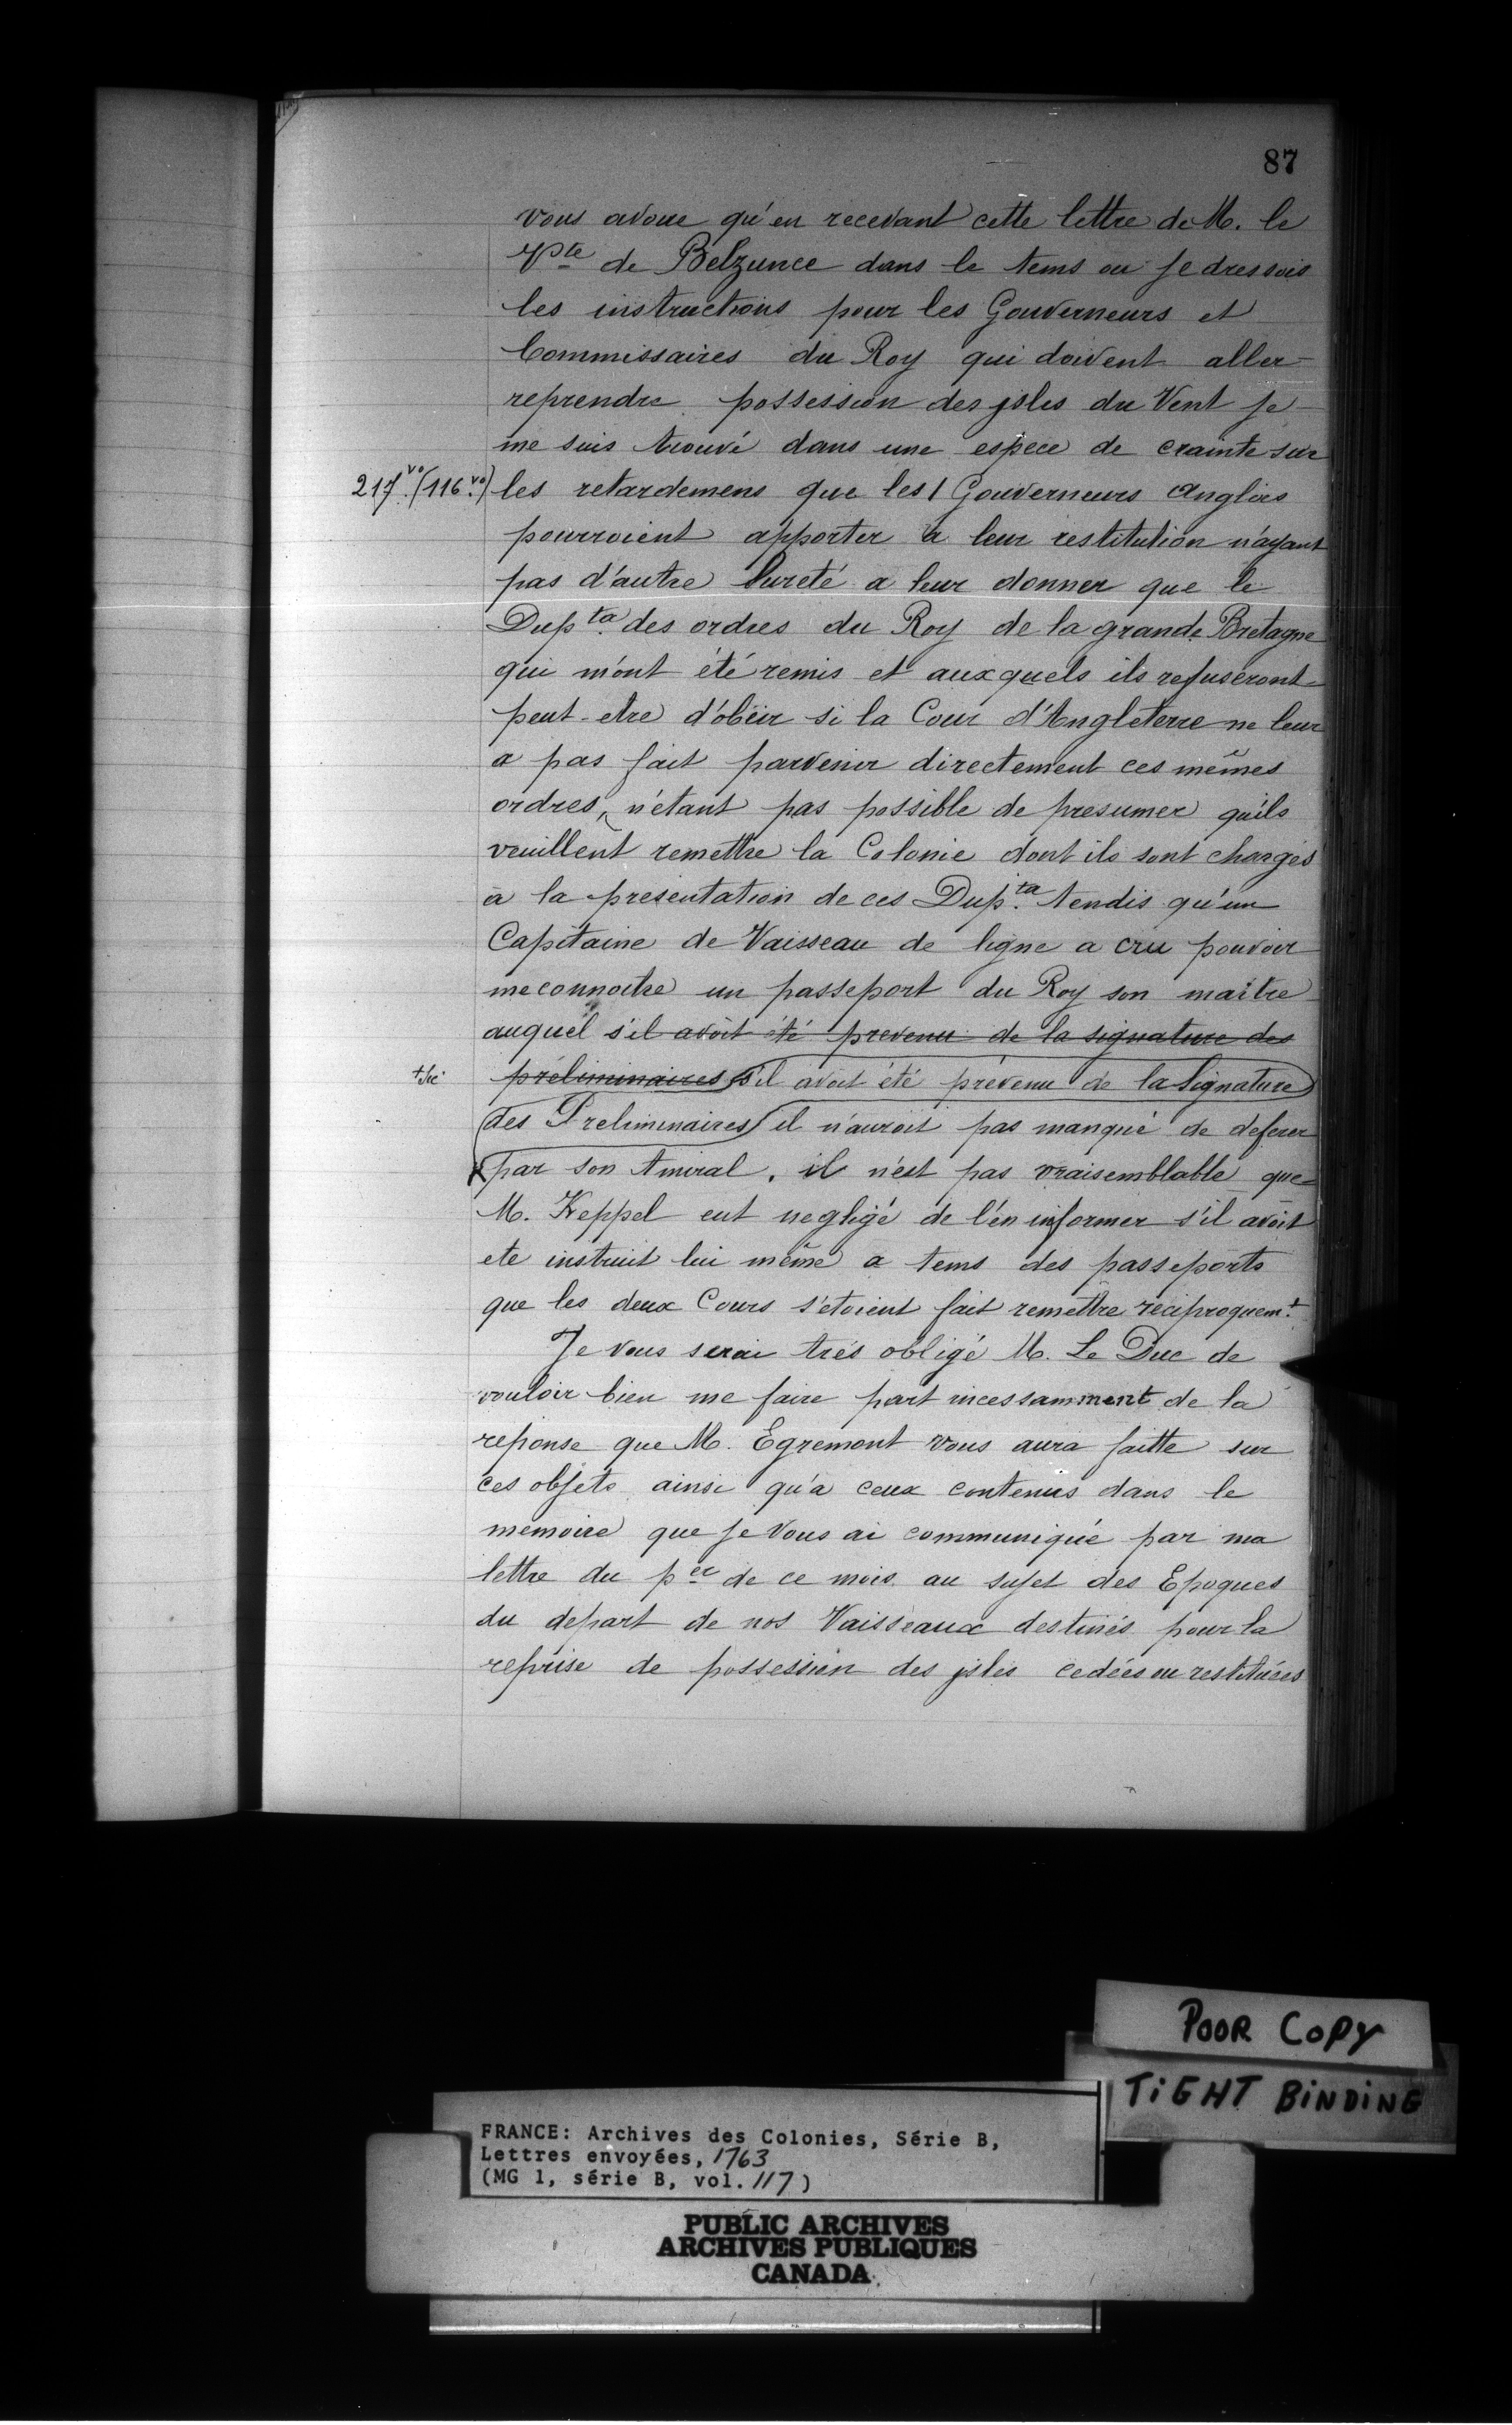 87
vous avoue qu'en recevant cette lettre de M. le
Vte de Belzunce dans le tems ou je dressois
les instructions pour les Gouverneurs et
Commissaires du Roy qui doivent aller
reprendre possession des jsles du Vent je
me suis trouvé dans une espece de crainte sur
217.vo (116.vo) les retardemens que les / Gouverneurs Anglois
pourroient apporter a leur restitution n'ayant
pas d'autre Sureté a leur donner que le
Dup.ta des ordres du Roy de la grande Bretagne
qui m'ont été remis et auxquels ils refuseront
peut-etre d'obéir si la Cour d'Angleterre ne leur
a pas fait parvenir directement ces mêmes
ordres, n'étant pas possible de presumer qu'ils
veuillent remettre la Colonie dont ils sont chargés
à la presentation de ces Dup.ta tendis qu'un
Capitaine de Vaisseau de ligne a cru pouvoir
meconnoitre un passeport du Roy son maitre
auquel s'il avoit été prevenu de la signature des
+Sic préliminaires s'il avoit été prévenu de la Signature
des Preliminaires il n'auroit pas manqué de deferer
par son Amiral, il n'est pas vraisemblable que
M. Keppel eut negligé de l'en informer s'il avoit
ete instruit lui même a tems des passeports
que les deux Cours s'etoient fait remettre reciproquem.t
Je vous serai très obligé M. Le Duc de
vouloir bien me faire part incessamment de la
reponse que M. Egremont vous aura faitte sur
ces objets ainsi qu'a ceux contenus dans le
memoire que je Vous ai communiqué par ma
lettre du per de ce mois au sujet des Epoques
du depart de nos Vaisseaux destinés pour la
reprise de possession des jsles cedées ou restituées
POOR COPY
TIGHT BINDING
FRANCE: Archives des Colonies, Série B,
Lettres envoyées, 1763
(MG 1, série B, vol. 117)
PUBLIC ARCHIVES
ARCHIVES PUBLIQUES
CANADA